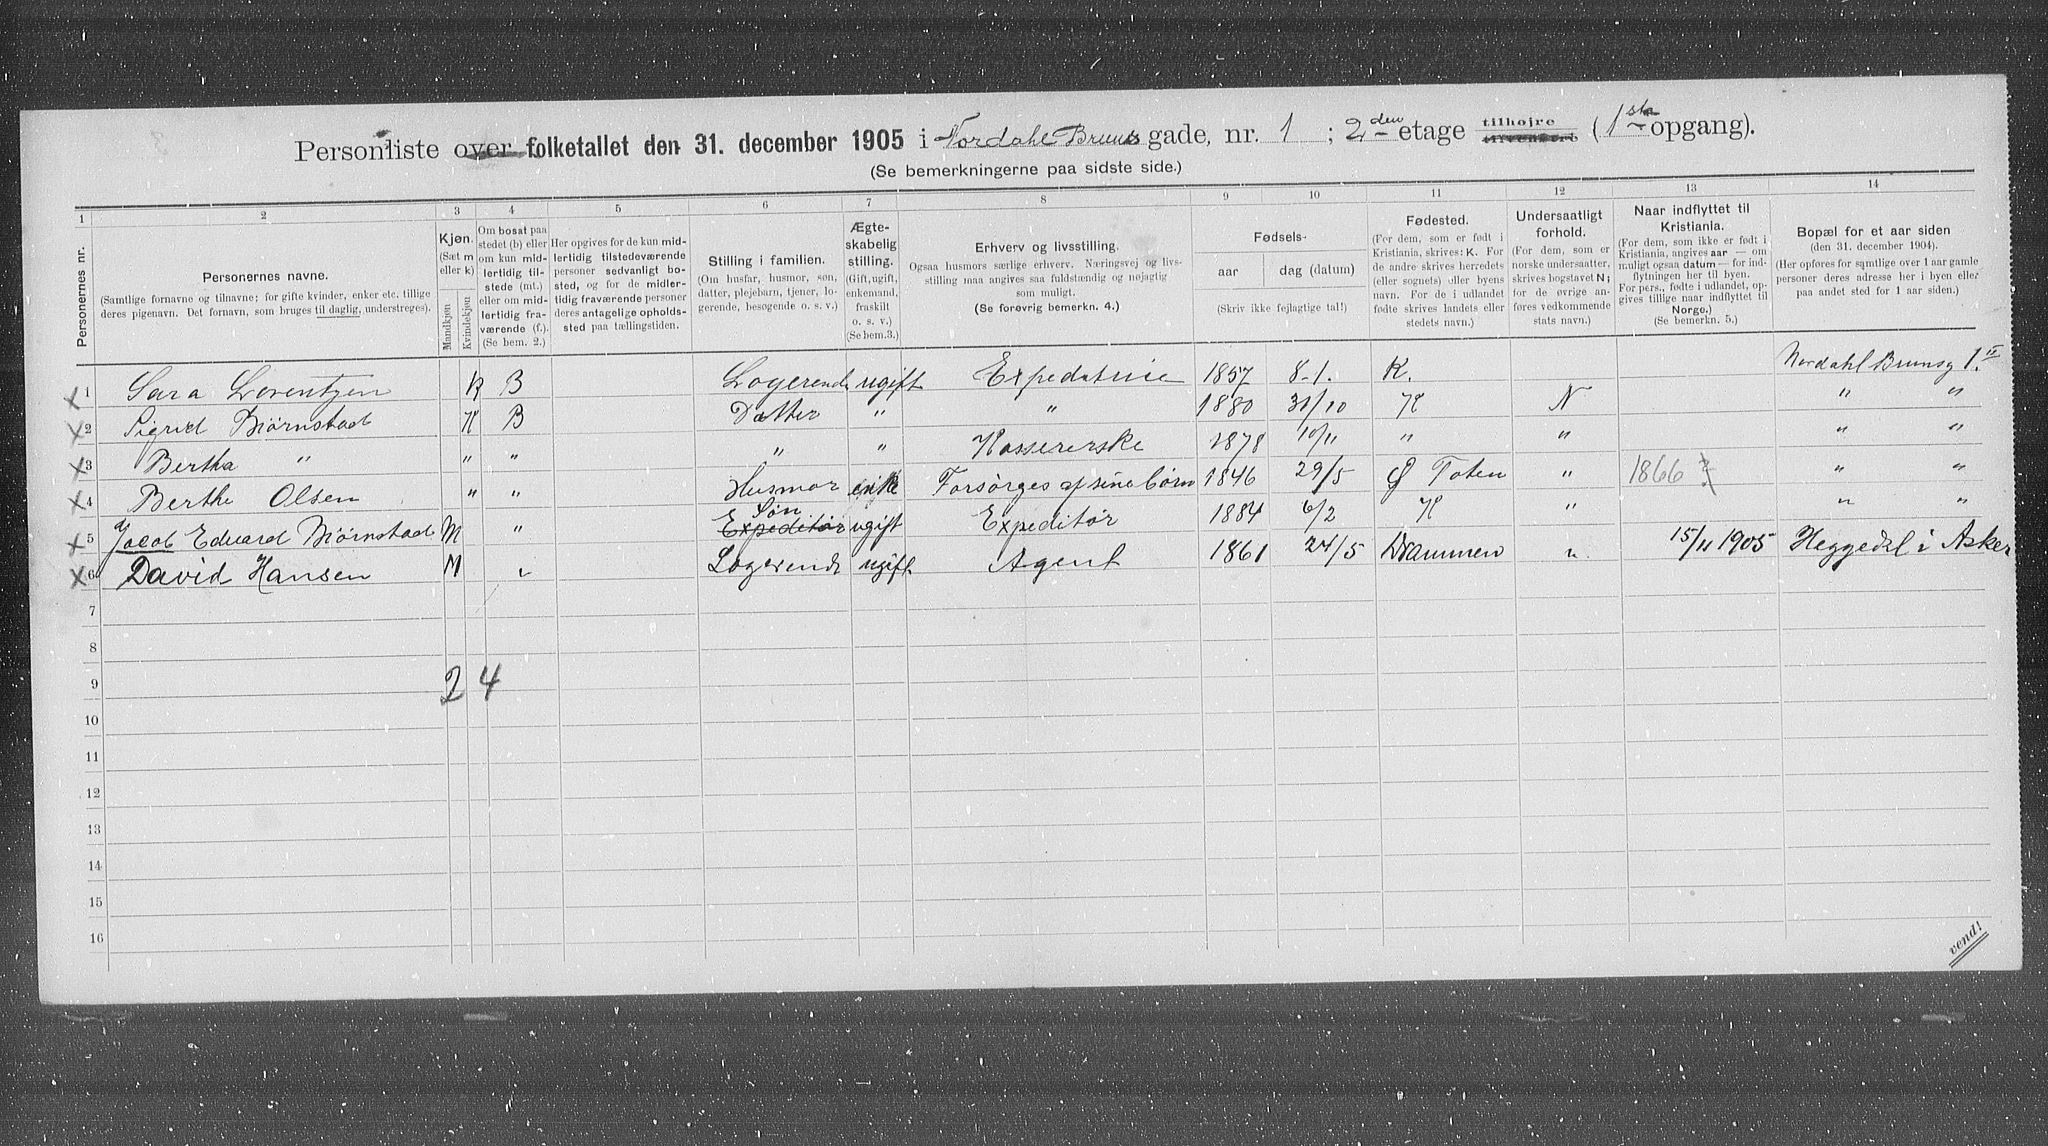 Personliste over folketallet den 31. december 1905 i Nordahl Bruns gade, nr. 1 ; 2den etage tilhøjre tilvenstre (1ste opgang).
(Se bemerkningerne paa sidste side.)
1 2 3 4 5 6 7 8 9 10 11 12 13 14
Personernes nr.
Personernes navne.
(Samtlige fornavne og tilnavne; for gifte kvinder, enker etc. tillige
deres pigenavn. Det fornavn, som bruges til daglig, understreges).
Kjøn.
(Sæt m
eller k)
Mandkjøn
Kvindekjøn
Om bosat paa
stedet (b) eller
om kun mid-
lertidig til-
stede (mt.)
eller om mid-
lertidig fra-
værende (f.).
(Se bem. 2.)
Her opgives for de kun mid-
lertidig tilstedeværende
personer sedvanligt bo-
sted, og for de midler-
tidig fraværende personer
deres antagelige opholds-
sted paa tællingstiden.
Stilling i familien.
(Om husfar, husmor, søn,
datter, plejebarn, tjener, lo-
gerende, besøgende o. s. v.)
Ægte-
skabelig
stilling.
(Gift, ugift,
enkemand,
fraskilt
o. s. v.)
(Se bem.3.)
Erhverv og livsstilling.
Ogsaa husmors særlige erhverv. Næringsvej og livs-
stilling maa angives saa fuldstændig og nøjagtig
som muligt.
(Se forøvrig bemerkn. 4.)
Fødsels-
aar dag (datum)
(Skriv ikke fejlagtige tal!)
Fødested.
(For dem, som er født i
Kristiania, skrives: K. For
de andre skrives herredets
(eller sognets) eller byens
navn. For de i udlandet
fødte skrives landets eller
stedets navn.)
Undersaatligt
forhold.
(For dem, som er
norske undersaatter,
skrives bogstavet N;
for de øvrige an-
føres vedkommende
stats navn.)
Naar indflyttet til
Kristiania.
(For dem, som ikke er født i
Kristiania, angives aar — om
muligt ogsaa datum — for ind-
flytningen her til byen.
For pers., fødte i udlandet, op-
gives tillige naar indflyttet til
Norge.)
(Se bemerkn. 5.)
Bopæl for et aar siden
(den 31. december 1904).
(Her opføres for samtlige over 1 aar gamle
personer deres adresse her i byen eller
paa andet sted for 1 aar siden.)
x 1 Sara Lorentzen k B Logerende ugift Expeditrice 1857 8-1. K. Nordahl Brunsg 1. II
x 2 Sigrid Bjørnstad K B Datter " " 1880 31/10 K N " "
x 3 Bertha " " " " " Kassererske 1878 10/11 " " " "
x 4 Berthe Olsen " " Husmor enke Forsørges af sine børn 1846 29/5 Ø Toten " 1866 ? " "
x 5 Jacob Eduard Bjørnstad M " Expeditør Søn ugift Expeditør 1884 6/2 K " " "
x 6 David Hansen M " Logerende ugift Agent 1861 24/5 Drammen " 15/11 1905 Heggedal i Asker
7
8
9 2 4
10
11
12
13
14
15
16
vend!